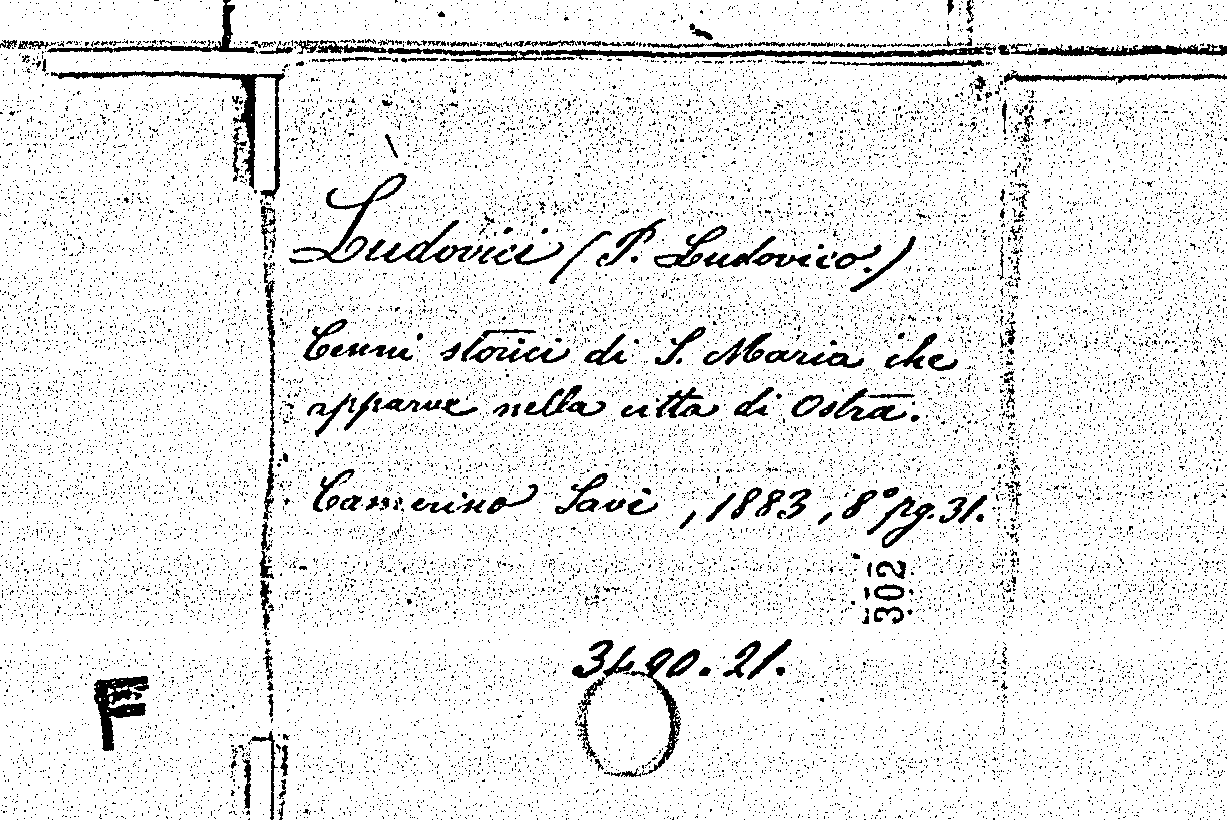 Ludovici (P. Ludovico.)
Cenni storici di S. Maria che
apparve nella citta di Ostra.
Camerino Savi, 1883, 8° pg. 31.
302
3490. 21.
F